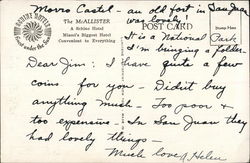 Morro Castel - an old fort in San Juan
was lovely!
BOBINE HOTELS
The McALLISTER
A Schine Hotel
Miami's Biggest Hotel
Convenient to Everything
POST CARD
It is a National Park
I'm bringing a folder.
Dear Jim: I have quite a few
coins for you - Didn't buy
anything much - Too poor &
too expensive - In San Juan they
had lovely things -
Much love, Helen